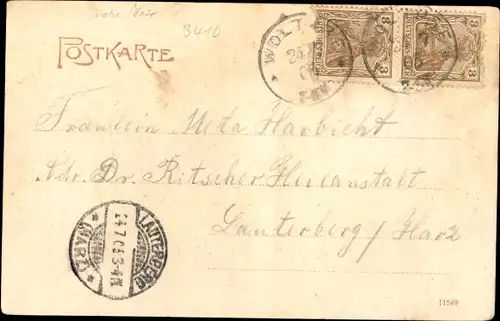 3410
POSTKARTE
WOLT
24.
3 3
Fräulein Meta Harbicht
Adr. Dr. Ritscher Heilanstalt
Lauterberg / Harz
LAUTERBERG
24.7.03.3-4N.
* (HARZ) *
11549